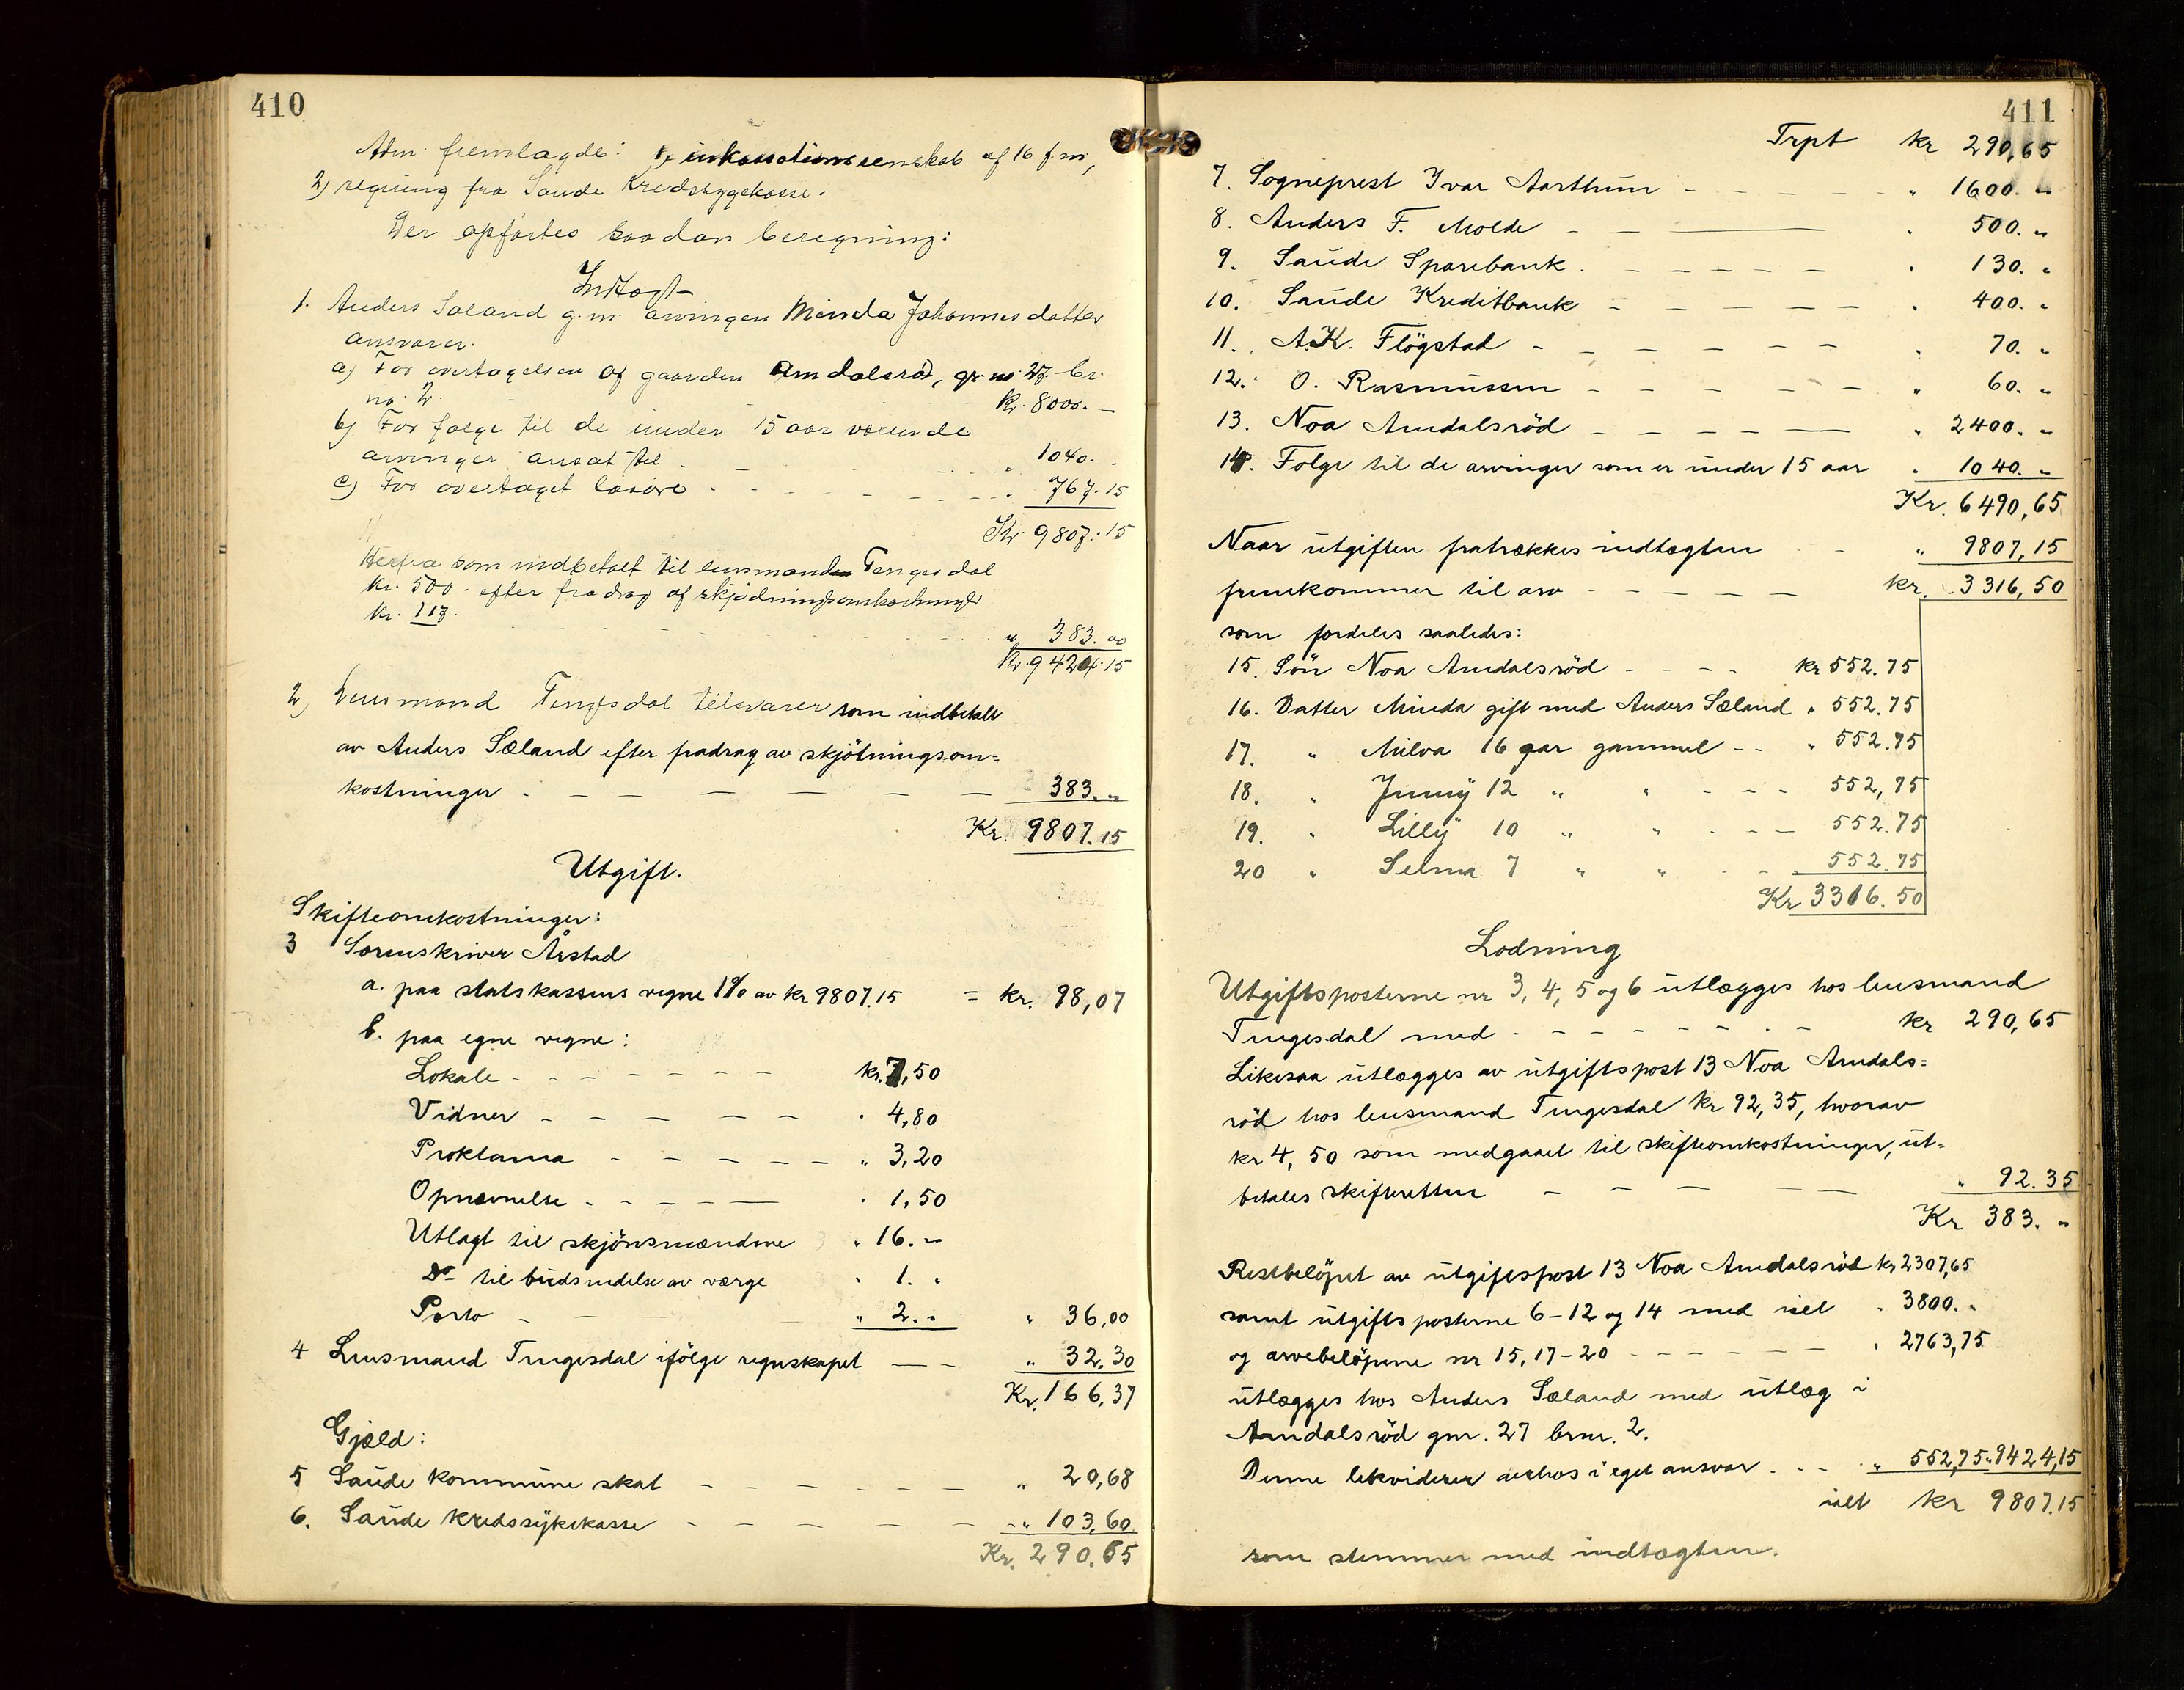 410
Adm. fremlagde: 1) inkassationsrenskab af 16 f.m.,
2) regning fra Saude Kredssygekasse.
Der opførtes saadan beregning:
Indtægt
1. Anders Sæland g.m. arvingen Minda Johannesdatter
ansvarer.
a) For overtagelsen af gaarden Amdalsrød, gr. no 27 br.
no. 2. Kr. 8000. —
b) For følge til de under 15 aar værende
arvinger ansat til - - - „ 1040. -
c) For overtaget løsøre - - - - - „ 767.15
Kr. 9807.15
Herfra som indbetalt til lensmand Tengesdal
kr. 500. efter fradrag af skjødningsomkostninger
kr. 117. - - - - „ 383.00
Kr. 9424.15
2) Lensmand Tengesdal tilsvarer som indbetalt
av Anders Sæland efter fradrag av skjötningsom=
kostninger - - - - - - 383. „
Kr. 9807.15
Utgift.
Skifteomkostninger:
3 Sorenskriver Årstad
a. paa statskassens vegne 1% av kr 9807.15 = kr. 98,07
b. paa egne vegne:
Lokale - - - - - - - kr. 7,50
Vidner - - - - - - „ 4,80
Proklama - - - - - - „ 3,20
Opnævnelse - - - - — „ 1,50
Utlagt til skjönsmændene „ 16. „
Do til budsendelse av værge „ 1. „
Porto - - - „ 2. „ „ 36,00
4 Lensmand Tengesdal ifölge regnskapet — - „ 32.30
Kr. 166,37
Gjæld:
5 Saude kommune skat - - - - - - „ 20,68
6. Saude kredssykekasse - - - - - „ 103,60
Kr. 290.65
411
Trpt kr 290,65
7. Sogneprest Ivar Aarthun - - - - - „ 1600. „
8. Anders F. Molde - - ——— „ 500. „
9. Saude Sparebank. - - - - - „ 130. „
10. Saude Kreditbank - - - - - „ 400. „
11. A.K. Flögstad - - - - - - „ 70. „
12. O. Rasmussen - - - - - „ 60. „
13. Noa Amdalsröd - - - - — „ 2400. „
14. Følge til de arvinger som er under 15 aar „ 1040. „
Kr. 6490,65
Naar utgiften fratrækkes indtægten - - „ 9807,15
fremkommer til arv - - - - - kr. 3316,50
som fordeles saaledes:
15. Søn Noa Amdalsröd - - - - kr 552.75
16. Datter Minda gift med Anders Sæland „ 552.75
17. „ Milva 16 aar gammel - - „ 552.75
18. „ Jenny 12 „ „ - - - 552,75
19. „ Lilly 10 „ „ - - - 552.75
20 „ Selma 7 „ „ - - 552.75
Kr 3316.50
Lodning
Utgiftsposterne nr 3, 4, 5 og 6 utlægges hos lensmand
Tengesdal med - - - - - - - - kr 290,65
Likesaa utlægges av utgiftspost 13 Noa Amdals=
röd hos lensmand Tengesdal kr 92,35, hvorav
kr 4,50 som medgaaet til skifteomkostninger, ut=
betales skifteretten - - - - — „ 92.35
Kr 383. „
Restbelöpet av utgiftspost 13 Noa Amdalsröd kr 2307,65
samt utgiftsposterne 6-12 og 14 med ialt „ 3800. „
og arvebelöpene nr 15, 17-20 - - - - - - „ 2763,75
utlægges hos Anders Sæland med utlæg i
Amdalsröd gnr. 27 brnr. 2.
Denne likviderer derhos i eget ansvar - - - „ 552,75 „ 9424,15
ialt kr 9807.15
som stemmer med indtægten.